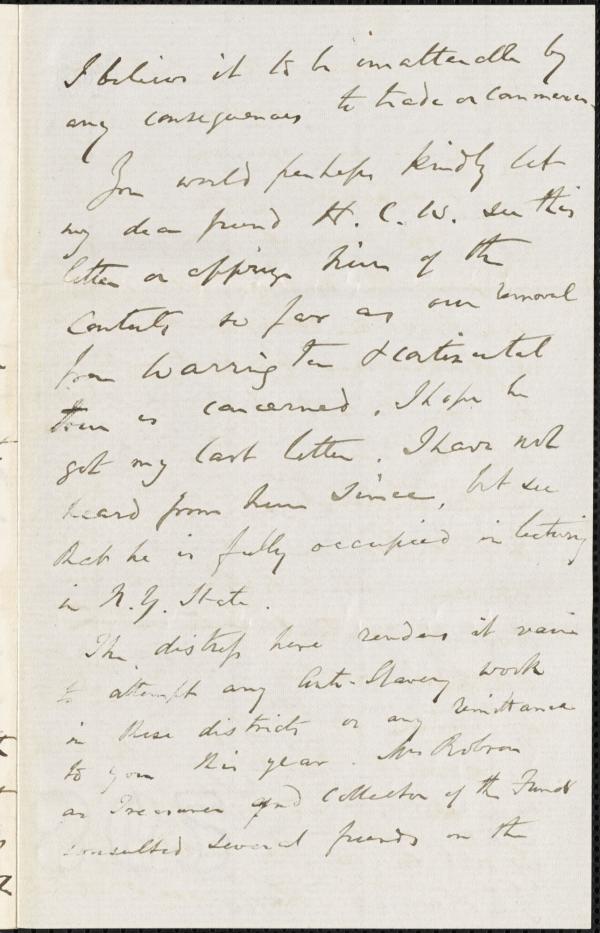 I believe it to be unattended by
any consequences to trade or Commerce
You would perhaps kindly let
my dear friend H. C. W. see this
letter or apprize him of the
Contents so far as our removal
from Warrington & Continental
tour is concerned. I hope he
got my last letter. I have not
heard from him since, but see
that he is fully occupied in lecturing
in N.Y. State.
The distress here renders it vain
to attempt any Anti-Slavery work
in these districts or any remittance
to you this year. Mrs Robson
as Treasurer and Collector of the Funds
consulted several friends on the